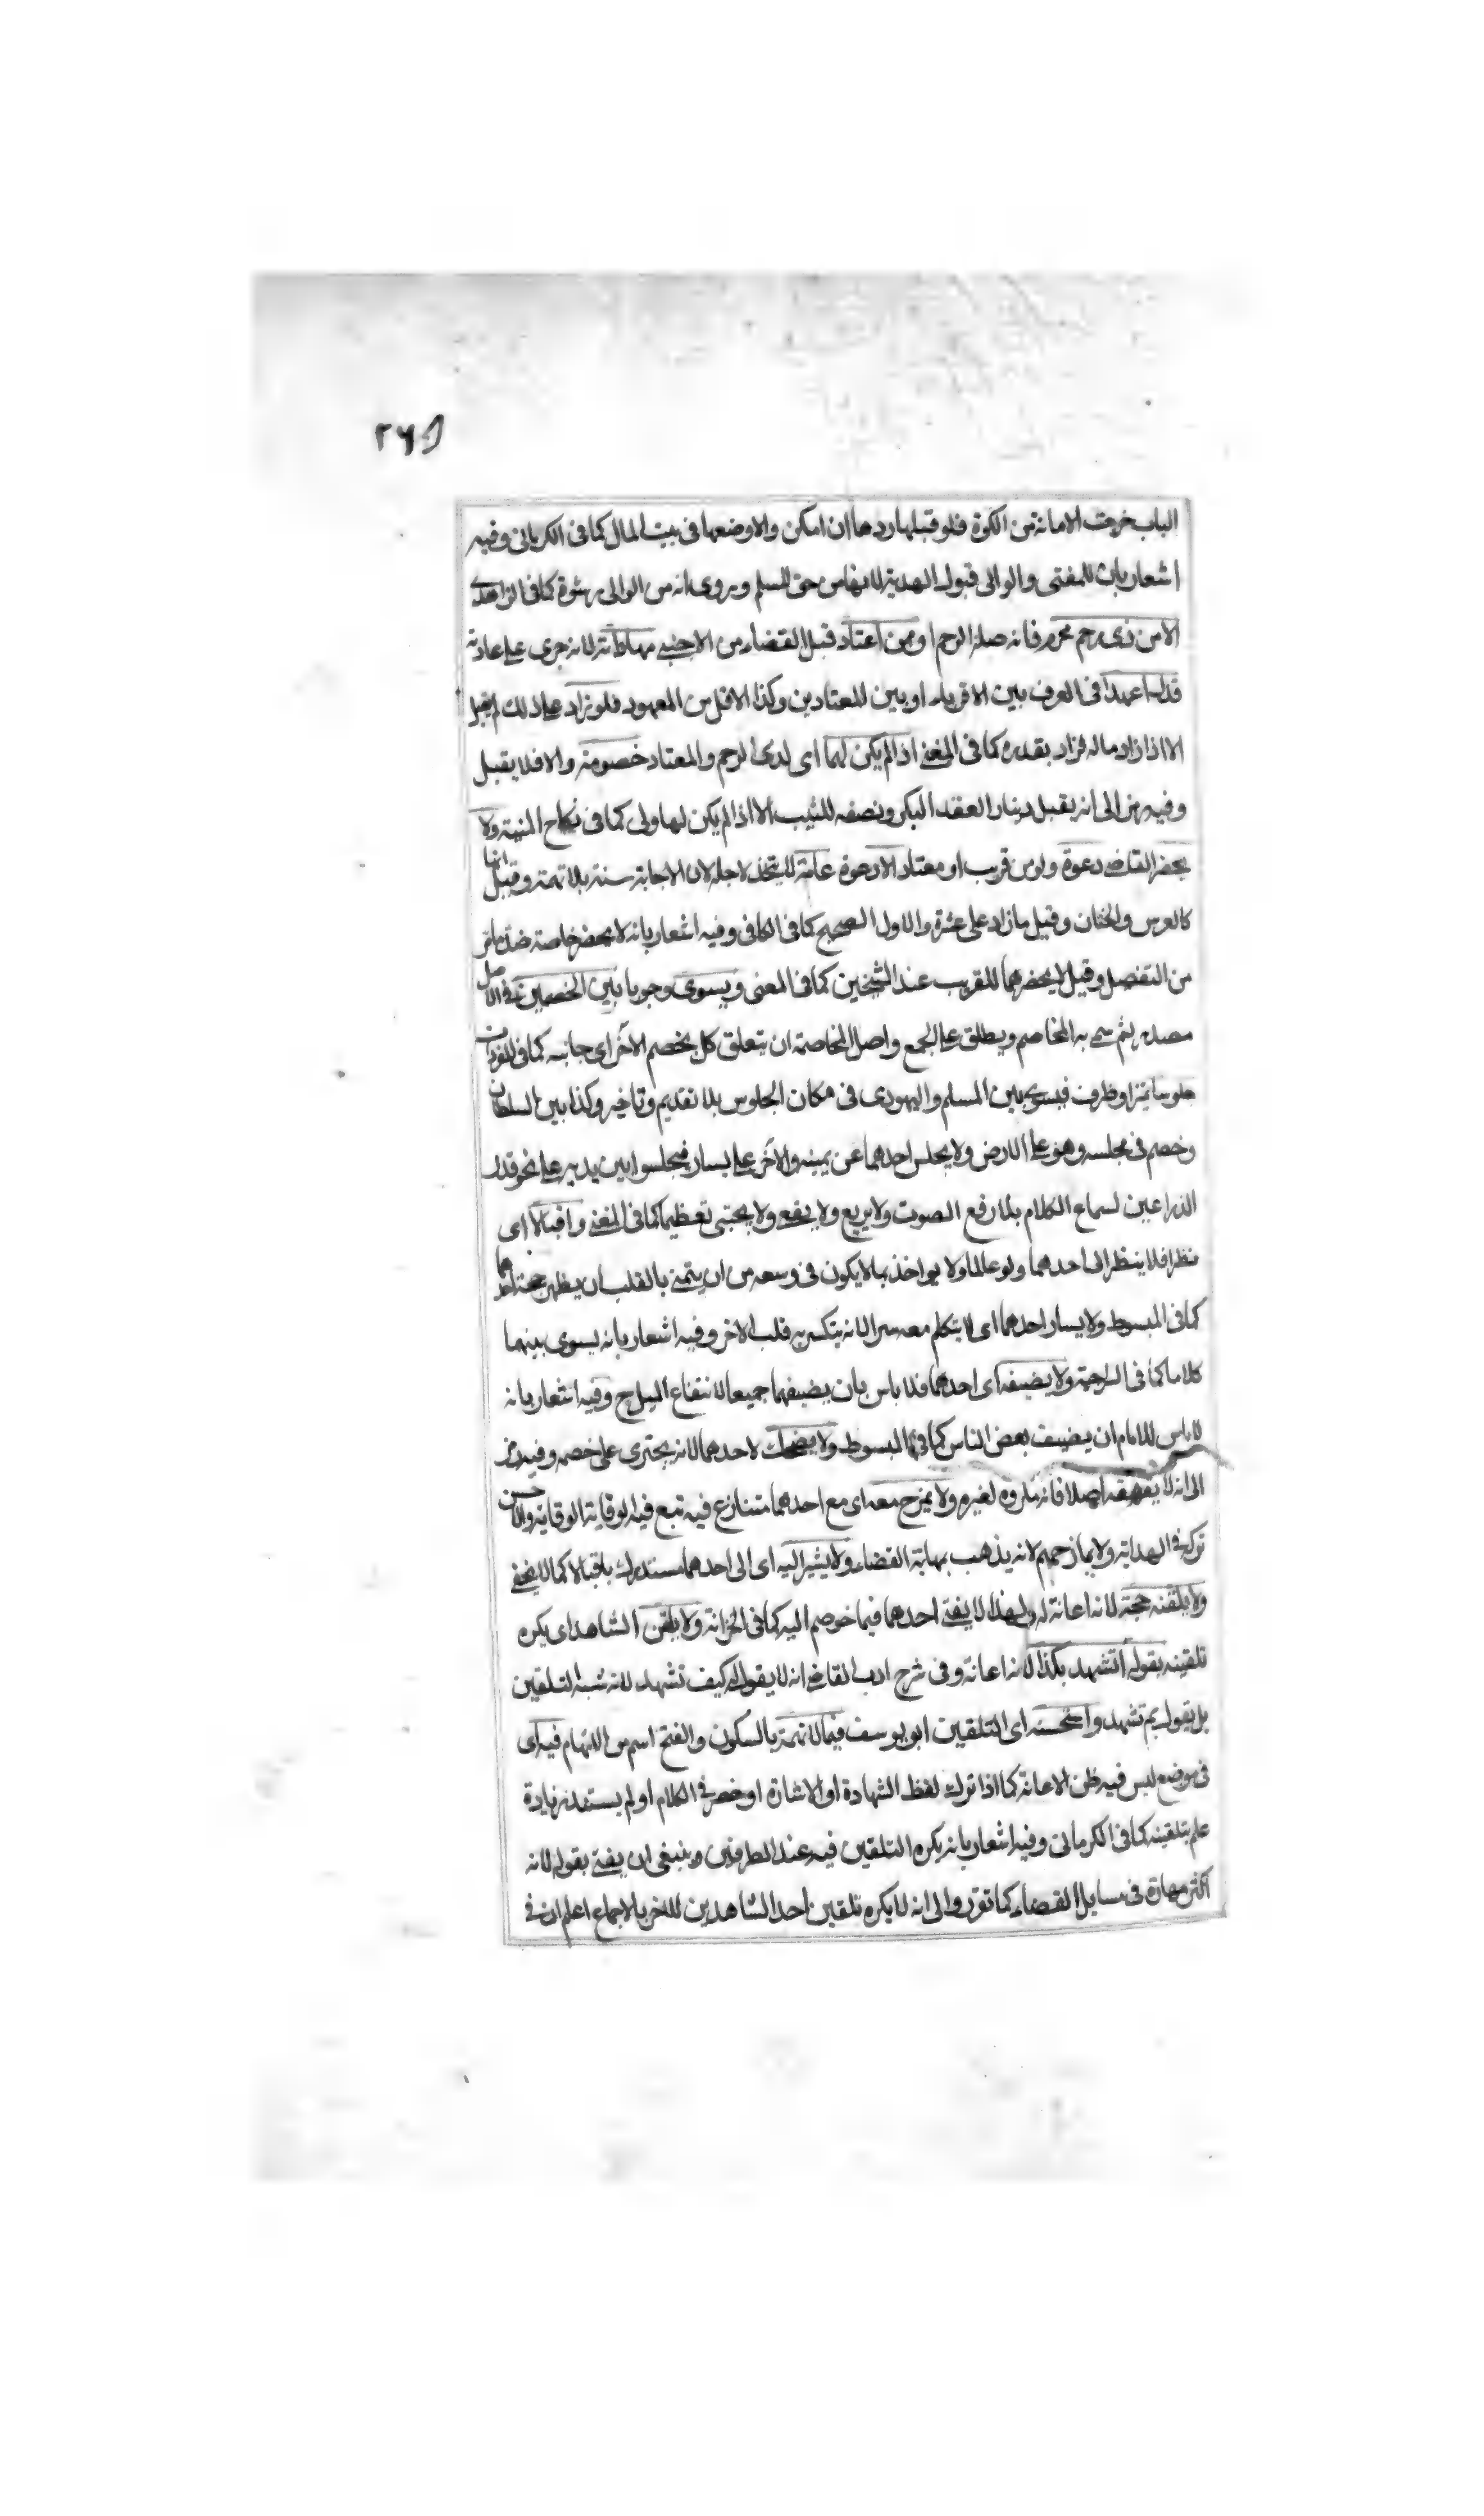 ٢٦٥
الباب خرجت الامانة من الكوة فلو قبلها ردها ان امكن والا وضعها فى بيت المال كما فى الكرمانى وفيه
اشعار بان للمفتى والوالى قبول الهدية لانها من حق المسلم وروى انه من الوالى رشوة كما فى الزاهدى
الا من ذى رحم محرم فانه صلة الرحم او ممن اعتاد قبل القضاء من الاجنبى مهاداته لانه جرى على عادته
قدرا عهدا فى العرف بين الاقرباء او بين المعتادين وكذا الاقل من المعهود فلو زاد على ذلك لم يقبل
الا اذا زاد ماله فزاد بقدره كما فى المغنى اذا لم يكن لهما اى لذى الرحم والمعتاد خصومة والا فلا يقبل
وفيه رمز الى انه يقبل دينار العقد البكر ونصفه للثيب الا اذا لم يكن لها ولى كما فى نكاح المنية ولا
يحضر القاضى دعوة ولو من قريب او معتاد الا دعوة عامة لا يتخذ لاجله لان الاجابة سنة بلا تهمة وقيل انها
كالعرس والختان وقيل ما زاد على عشرة والاول الصحيح كما فى الكافى وفيه اشعار بانه لا يحضر خاصة ضد ما مر
من التفصيل وقيل لا يحضرهما للقريب عند الشيخين كما فى المغنى ويسوى وجوبا بين الخصمين فى الاصل
مصدر ثم سمى به المخاصم ويطلق على الجمع واصل المخاصمة ان يتعلق كل بخصم الاخر اى جانبه كما فى المفردات
جلوسا تميز او ظرف فيسوى بين المسلم واليهودى فى مكان الجلوس بلا تقديم وتاخير وكذا بين السلطان
وخصم فى مجلسه وهو على الارض ولا يجلس احدهما عن يمينه والاخر على يساره فيجلسوا بين يديه على نحو قدر
الذراعين لسماع الكلام بلا رفع الصوت ولا يربع ولا يقعى ولا يحتبى تعظيما كما فى المغنى واقبالا اى
نظرا فلا ينظر الى احدهما ولو عالما ولا يواخذ بما لا يكون فى وسعه من ان يتمنى بالقلب ان يظهر حجة احدهما
كما فى المبسوط ولا يسار احدهما اى لا يتكلم معه سرا لانه ينكسر به قلب الاخر وفيه اشعار بانه يسوى بينهما
كلاما كما فى السراجية ولا يضيفه اى احدهما فلا باس بان يضيفهما جميعا لانتفاء الميل ح وفيه اشعار بانه
لا باس للامام ان يضيف بعض الناس كما فى المبسوط ولا يضحك لاحدهما لانه يجترى على خصمه وفيه رمز
الى انه لا يقهقه اصلا فانه مكروه لغيره ولا يمزح معه اى مع احدهما متنازع فيه تبع فيه الوقاية الوقاية والاحسن
تركه فى الهداية ولا يمازحهم لانه يذهب بمهابة القضاء ولا يشير اليه اى الى احدهما مستدرك باقبالا كما لا يخفى
ولا يلقنه حجة لانه اعانة له ولهذا لا يفتى احدهما فيما خوصم اليه كما فى الخزانة ولا يلقن الشاهد اى يكره
تلقينه بقوله اتشهد بكذا لانه اعانة وفى شرح ادب القاضى انه لا يقول له كيف تشهد لانه شبه التلقين
بل يقول بم تشهد واستحسنه اى التلقين ابو يوسف فيما لا تهمة بالسكون والفتح اسم من الاتهام فيه اى
فى موضع ليس فيه ظن الاعانة كما اذا ترك لفظ الشهادة او الاشارة او حصر فى الكلام او لم يستفد زيادة
علم بتلقينه كما فى الكرمانى وفيه اشعار بانه يكره التلقين فيه عند الطرفين وينبغى ان يفتى بقوله لانه
اكثر مهارة فى مسايل القضاء كما تقرر والى انه لا يكره تلقين احد الشاهدين للاخر بالاجماع اعلم ان فى